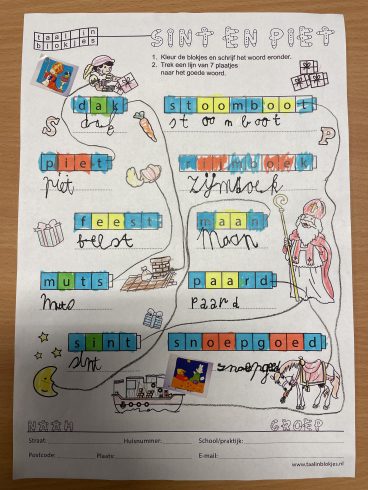 taal in
blokjes
SINT EN PIET
1. Kleur de blokjes en schrijf het woord eronder.
2. Trek een lijn van 7 plaatjes
naar het goede woord.
dak
stoomboot
dak
stoomboot
S
P
piet
boek
piet
zijmboek
feest
maan
feest
maan
muts
paard
muts
paard
sint
snoepgoed
sint
snoepgoed
NAAM
GROEP
Straat:
Huisnummer:
School/praktijk:
Postcode:
Plaats:
E-mail:
www.taalinblokjes.nl